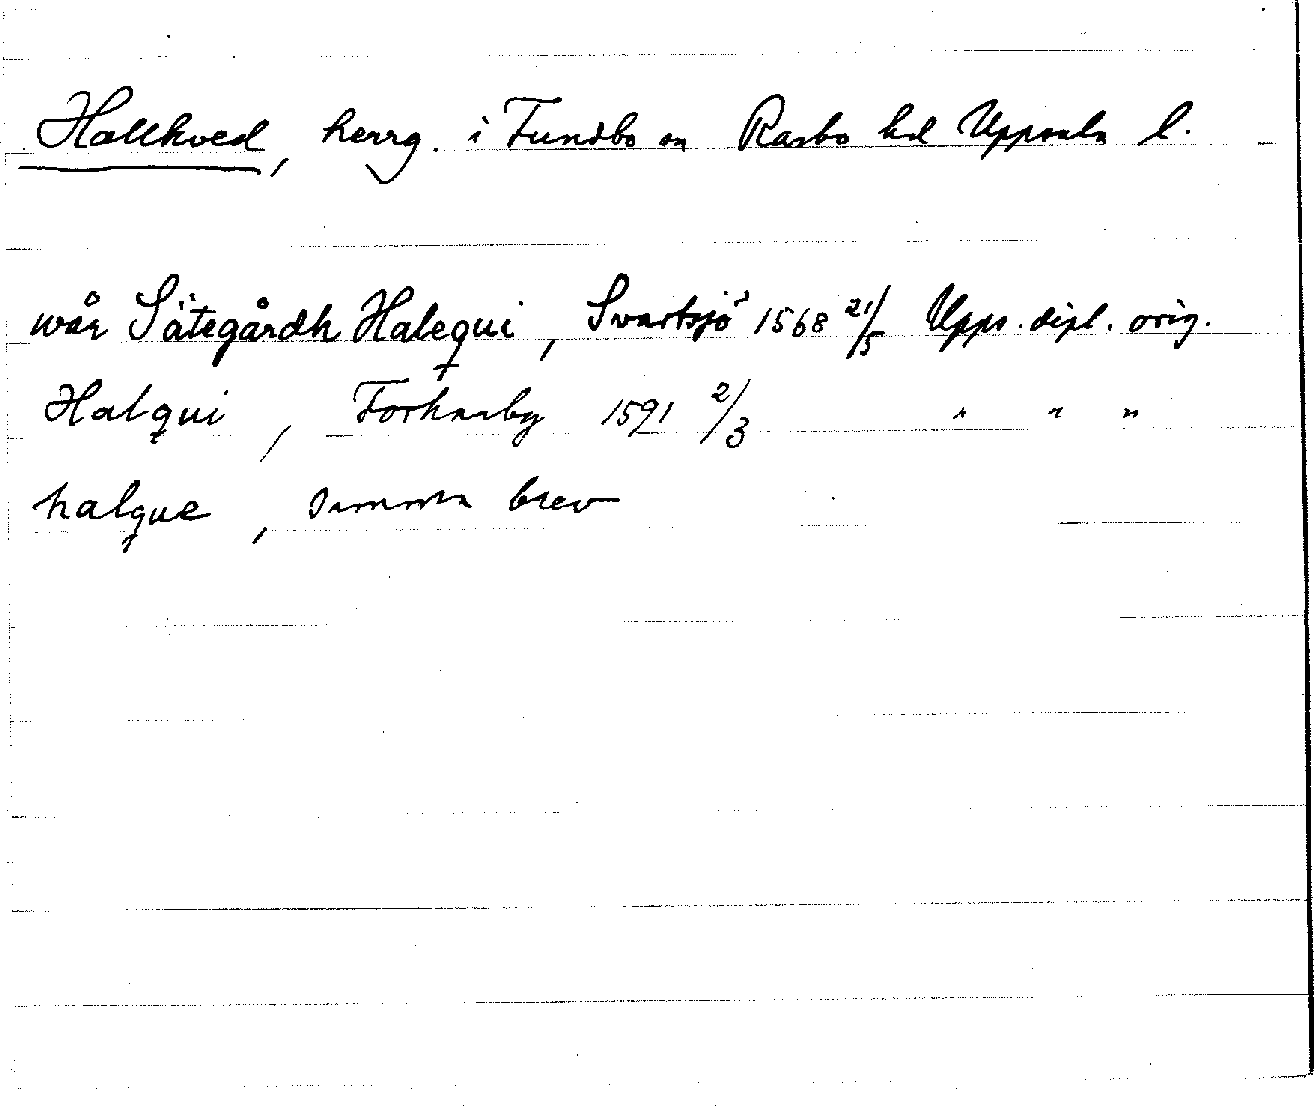 Hallkved, herrg. i Funbo sn Rasbo hd Uppsala l.
wår Sätegårdh Halequi, Svartsjö 1568 21/5 Upps. dipl. orig.
Halqui, Forkarby 1591 2/3 " " "
halque, samma brev